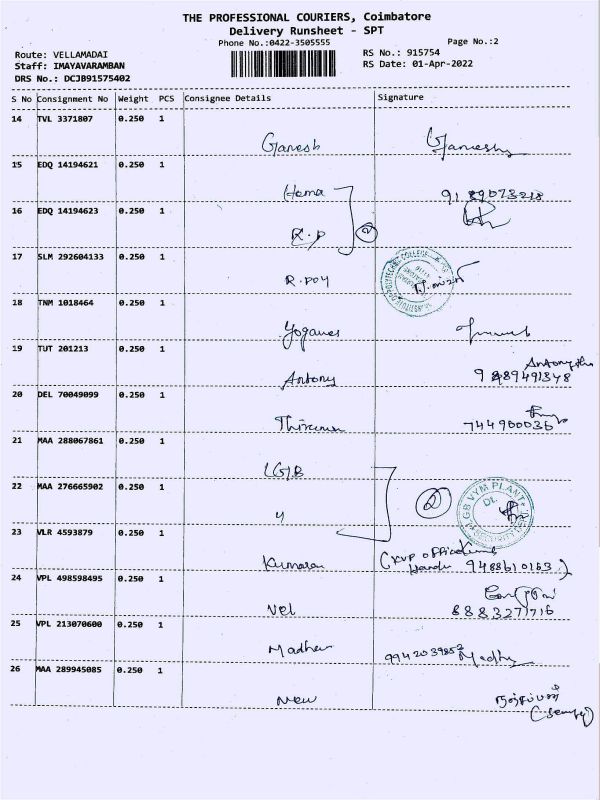 THE PROFESSIONAL COURIERS, Coimbatore
Delivery Runsheet - SPT
Phone No.:0422-3505555
Page No.:2
Route: VELLAMADAI
RS No.: 915754
Staff: IMAYAVARAMBAN
RS Date: 01-Apr-2022
DRS No.: DCJB91575402
S No Consignment No Weight PCS Consignee Details Signature
14 TVL 3371807 0.250 1
Ganesh
15 EDQ 14194621 0.250 1
Hema
16 EDQ 14194623 0.250 1
R.P 2
17 SLM 292604133 0.250 1
R.Poy
18 TNM 1018464 0.250 1
Yoganes
19 TUT 201213 0.250 1
Antony
20 DEL 70049099 0.250 1
744900036
21 MAA 288067861 0.250 1
LGB
22 MAA 276665902 0.250 1
" 2
LGB VYM PLANT
Dt.
SECURITY
23 VLR 4593879 0.250 1
Kumaran 9488610163
24 VPL 498598495 0.250 1
Vel 8883271716
25 VPL 213070600 0.250 1
Madhav Madhu
26 MAA 289945085 0.250 1
New